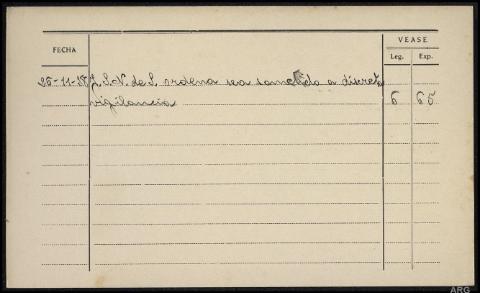 VEASE
FECHA
Leg. Exp.
26-11-38 J. S. N. de S. ordena sea sometido a discreta
vigilancia 6 65
ARG